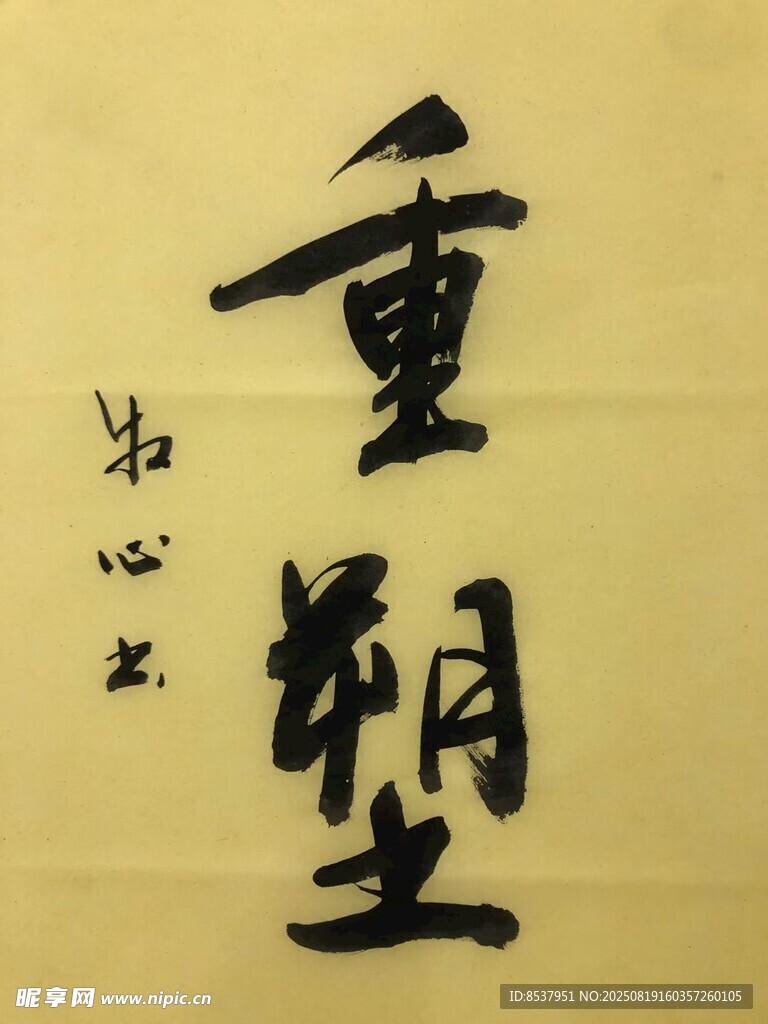 重塑
牧心书
昵享网 www.nipic.cn
ID:8537951 NO:20250819160357260105